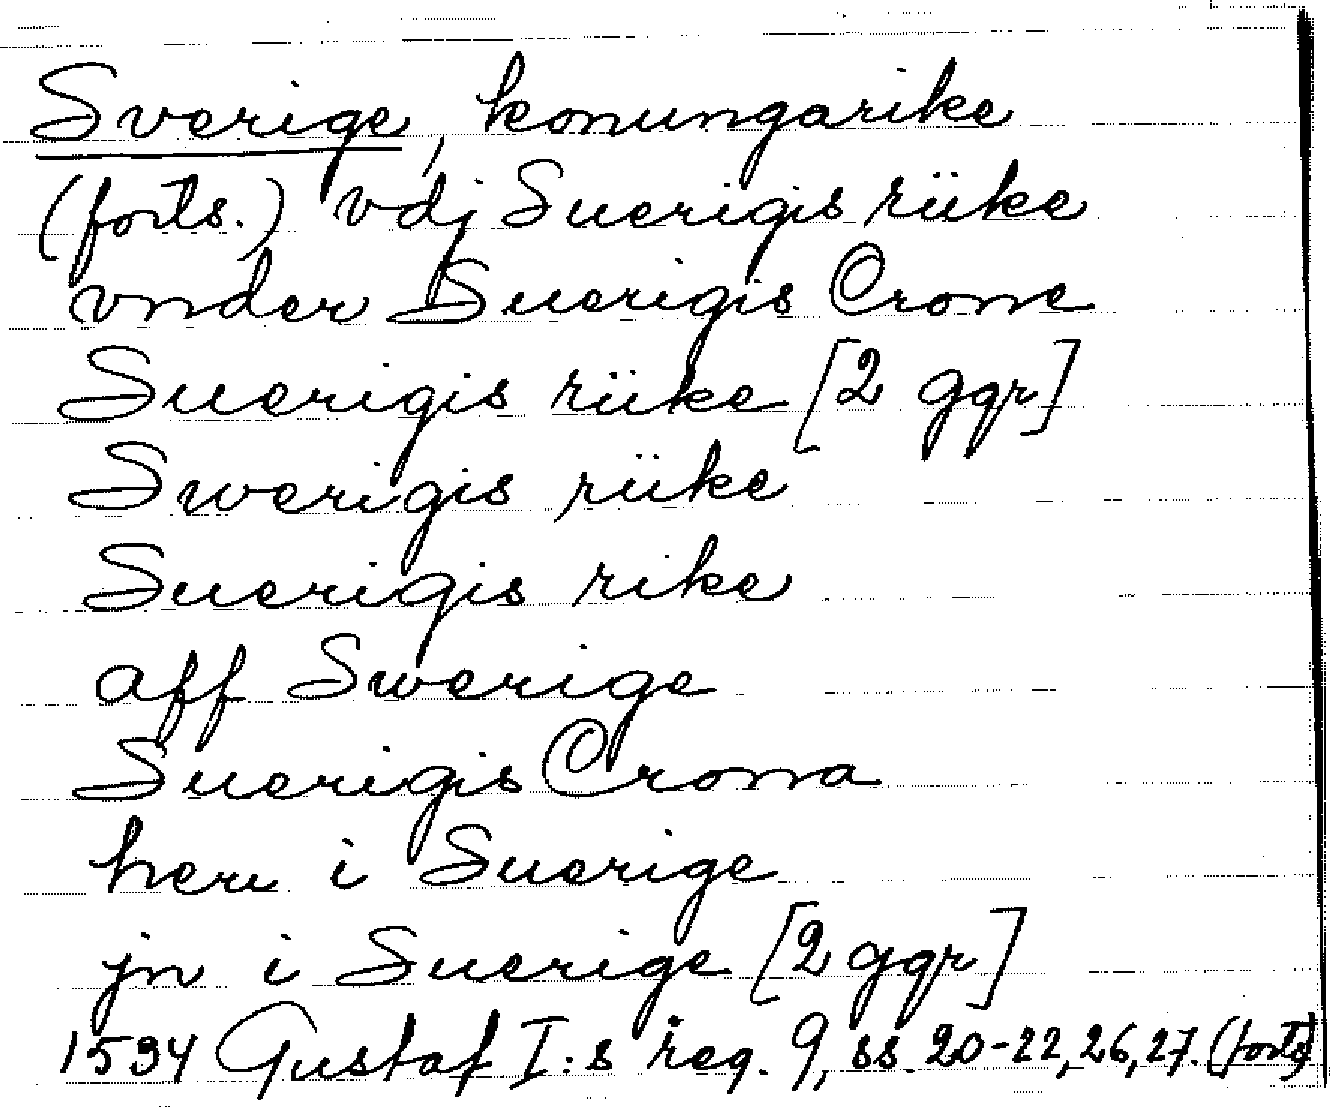 Sverige, konungarike
(forts.) vdj Suerigis rüke
vnder Suerigis Crone
Suerigis rüke [2 ggr]
Swerigis rüke
Suerigis rike
aff Swerige
Suerigis Crona
heru i Suerige
jn i Suerige [2 ggr]
1534 Gustaf I:s reg. 9, ss. 20-22, 26, 27. (forts)